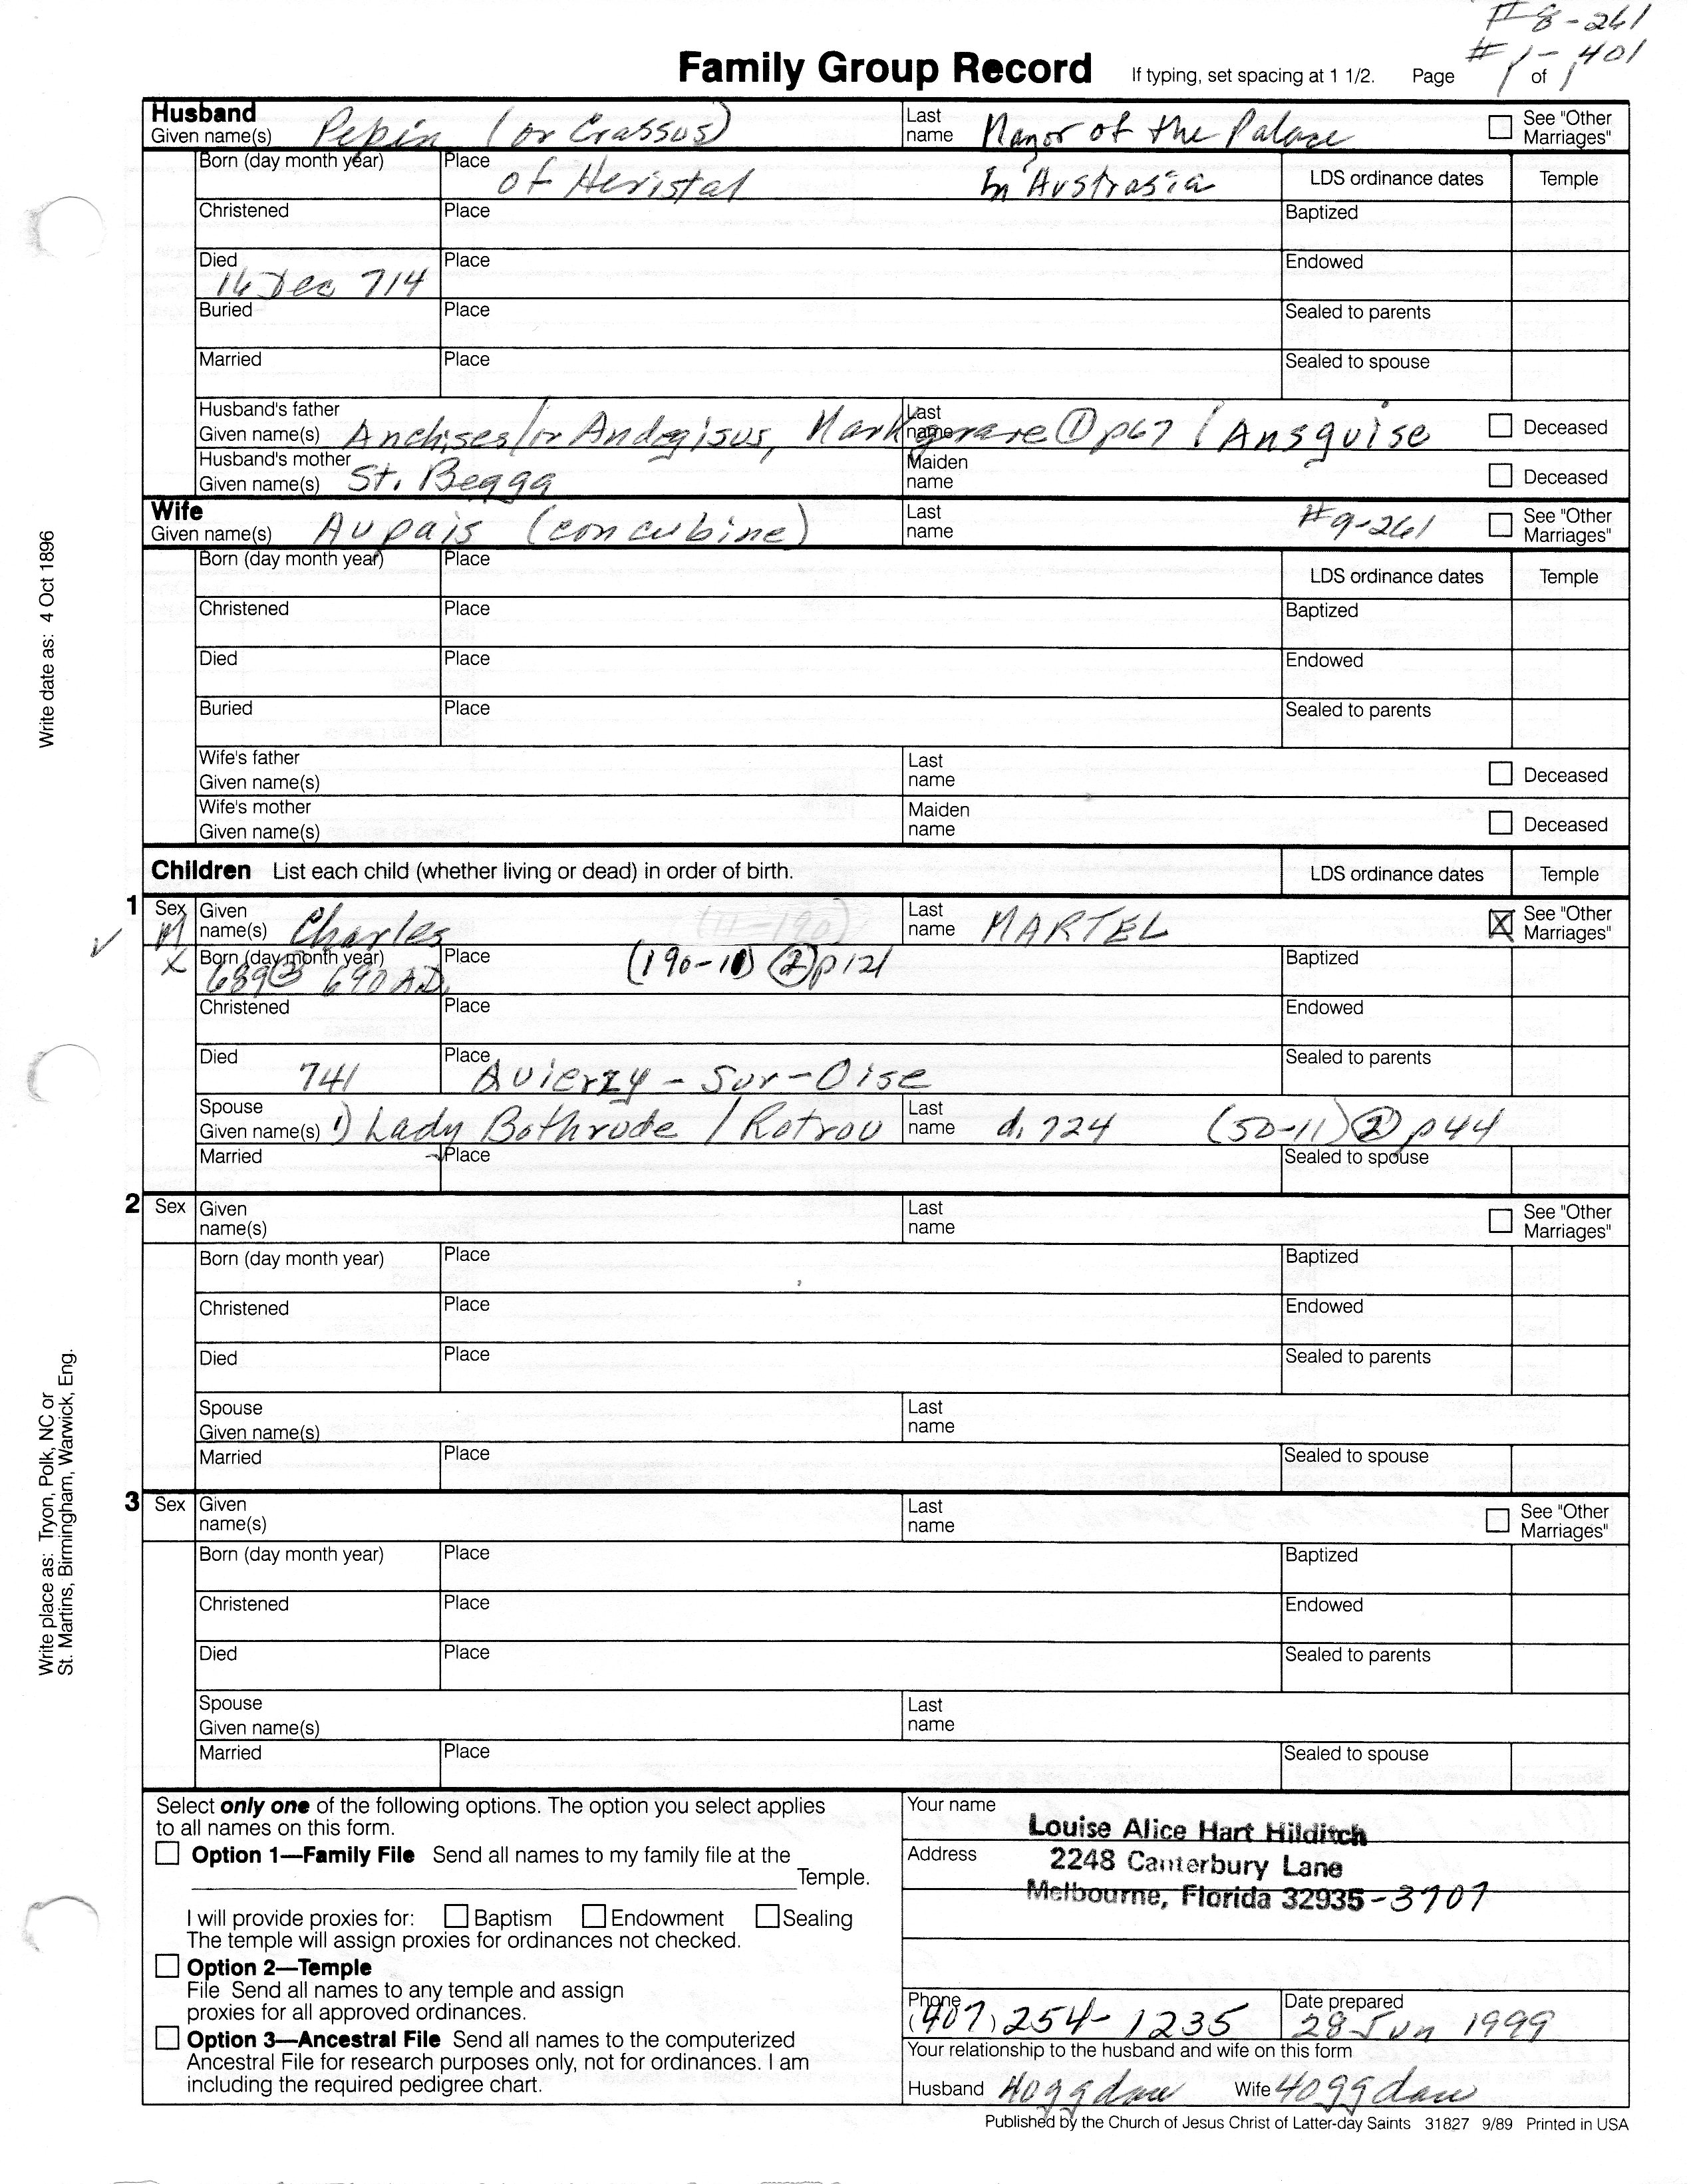 #8-261
#1-401
Family Group Record If typing, set spacing at 1 1/2. Page 1 of 1
Husband
Given name(s) Pepin (or Crassus) Last name Mayor of the Palace See "Other Marriages"
Born (day month year) Place of Heristal In Austrasia LDS ordinance dates Temple
Christened Place Baptized
Died 16 Dec 714 Place Endowed
Buried Place Sealed to parents
Married Place Sealed to spouse
Husband's father
Given name(s) Anchises/or Andegisus, Markgrare ① p67 / Ansguise Last name Deceased
Husband's mother
Given name(s) St. Begga Maiden name Deceased
Wife
Given name(s) Aupais (concubine) Last name #9-261 See "Other Marriages"
Born (day month year) Place LDS ordinance dates Temple
Christened Place Baptized
Died Place Endowed
Buried Place Sealed to parents
Wife's father
Given name(s) Last name Deceased
Wife's mother
Given name(s) Maiden name Deceased
Children List each child (whether living or dead) in order of birth. LDS ordinance dates Temple
1 Sex M Given name(s) Charles (11-190) Last name MARTEL See "Other Marriages"
X Born (day month year) 689② 690 A.D. Place (190-11) ② p121 Baptized
Christened Place Endowed
Died 741 Place Quierzy-Sur-Oise Sealed to parents
Spouse
Given name(s) 1) Lady Bothrude / Rotrou Last name d. 724 (50-11) ② p44
Married Place Sealed to spouse
2 Sex Given name(s) Last name See "Other Marriages"
Born (day month year) Place Baptized
Christened Place Endowed
Died Place Sealed to parents
Spouse
Given name(s) Last name
Married Place Sealed to spouse
3 Sex Given name(s) Last name See "Other Marriages"
Born (day month year) Place Baptized
Christened Place Endowed
Died Place Sealed to parents
Spouse
Given name(s) Last name
Married Place Sealed to spouse
Select only one of the following options. The option you select applies
to all names on this form.
Option 1—Family File Send all names to my family file at the
Temple.
I will provide proxies for: Baptism Endowment Sealing
The temple will assign proxies for ordinances not checked.
Option 2—Temple
File Send all names to any temple and assign
proxies for all approved ordinances.
Option 3—Ancestral File Send all names to the computerized
Ancestral File for research purposes only, not for ordinances. I am
including the required pedigree chart.
Your name Louise Alice Hart Hilditch
Address 2248 Canterbury Lane
Melbourne, Florida 32935-3707
Phone (407) 254-1235 Date prepared 28 Jun 1999
Your relationship to the husband and wife on this form
Husband 40ggdau Wife 40ggdau
Published by the Church of Jesus Christ of Latter-day Saints 31827 9/89 Printed in USA
Write date as: 4 Oct 1896
Write place as: Tryon, Polk, NC or
St. Martins, Birmingham, Warwick, Eng.